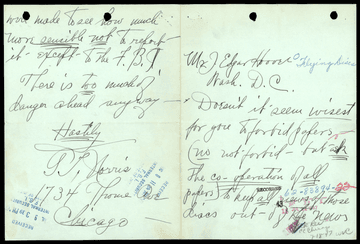 Mr J Edgar Hoover
Wash. D.C.
Doesn't it seem wisest
for you to forbid papers
(no not forbid - but ask
the co-operation of all
papers) to keep all news of those
discs out - of the news
were made to see how much
more sensible not to report
it - except to the F.B.I
There is too much
danger ahead anyway -
Hastily
T. Norris
1734 Thome Ave
Chicago
RECORDED
62-83894-22